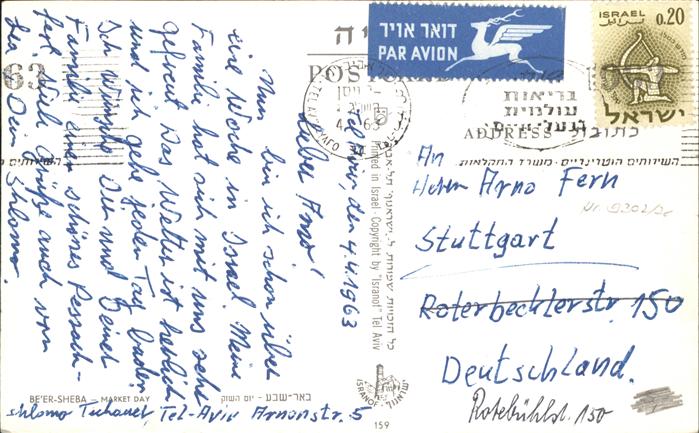 דואר אויר
PAR AVION
ISRAEL
0.20
ישראל
POST
ADDRESS
כתובת
בריאות
עולמית
63
השירותים הוטרינריים - משרד החקלאות
Tel Aviv, den 4.4.1963
Lieber Arno!
Nun bin ich schon über
eine Woche in Israel. Meine
Familie hat sich mit uns sehr
gefreut. Das Wetter ist herrlich
und ich gehe jeden Tag baden.
Ich wünsche Dir und Deiner
Familie ein schönes Pessach-
fest. Viele Grüße auch von
Dein Shlomo.
An
Herrn Arno Fern
Stuttgart
Roterbecklerstr. 150
Deutschland.
Rotebühlst. 150
Printed in Israel - Copyright by "Isranof" Tel Aviv
ISRANOF
BE'ER-SHEBA – MARKET DAY
באר-שבע - יום השוק
159
Shlomo Tuchauer, Tel-Aviv Arnonstr. 5